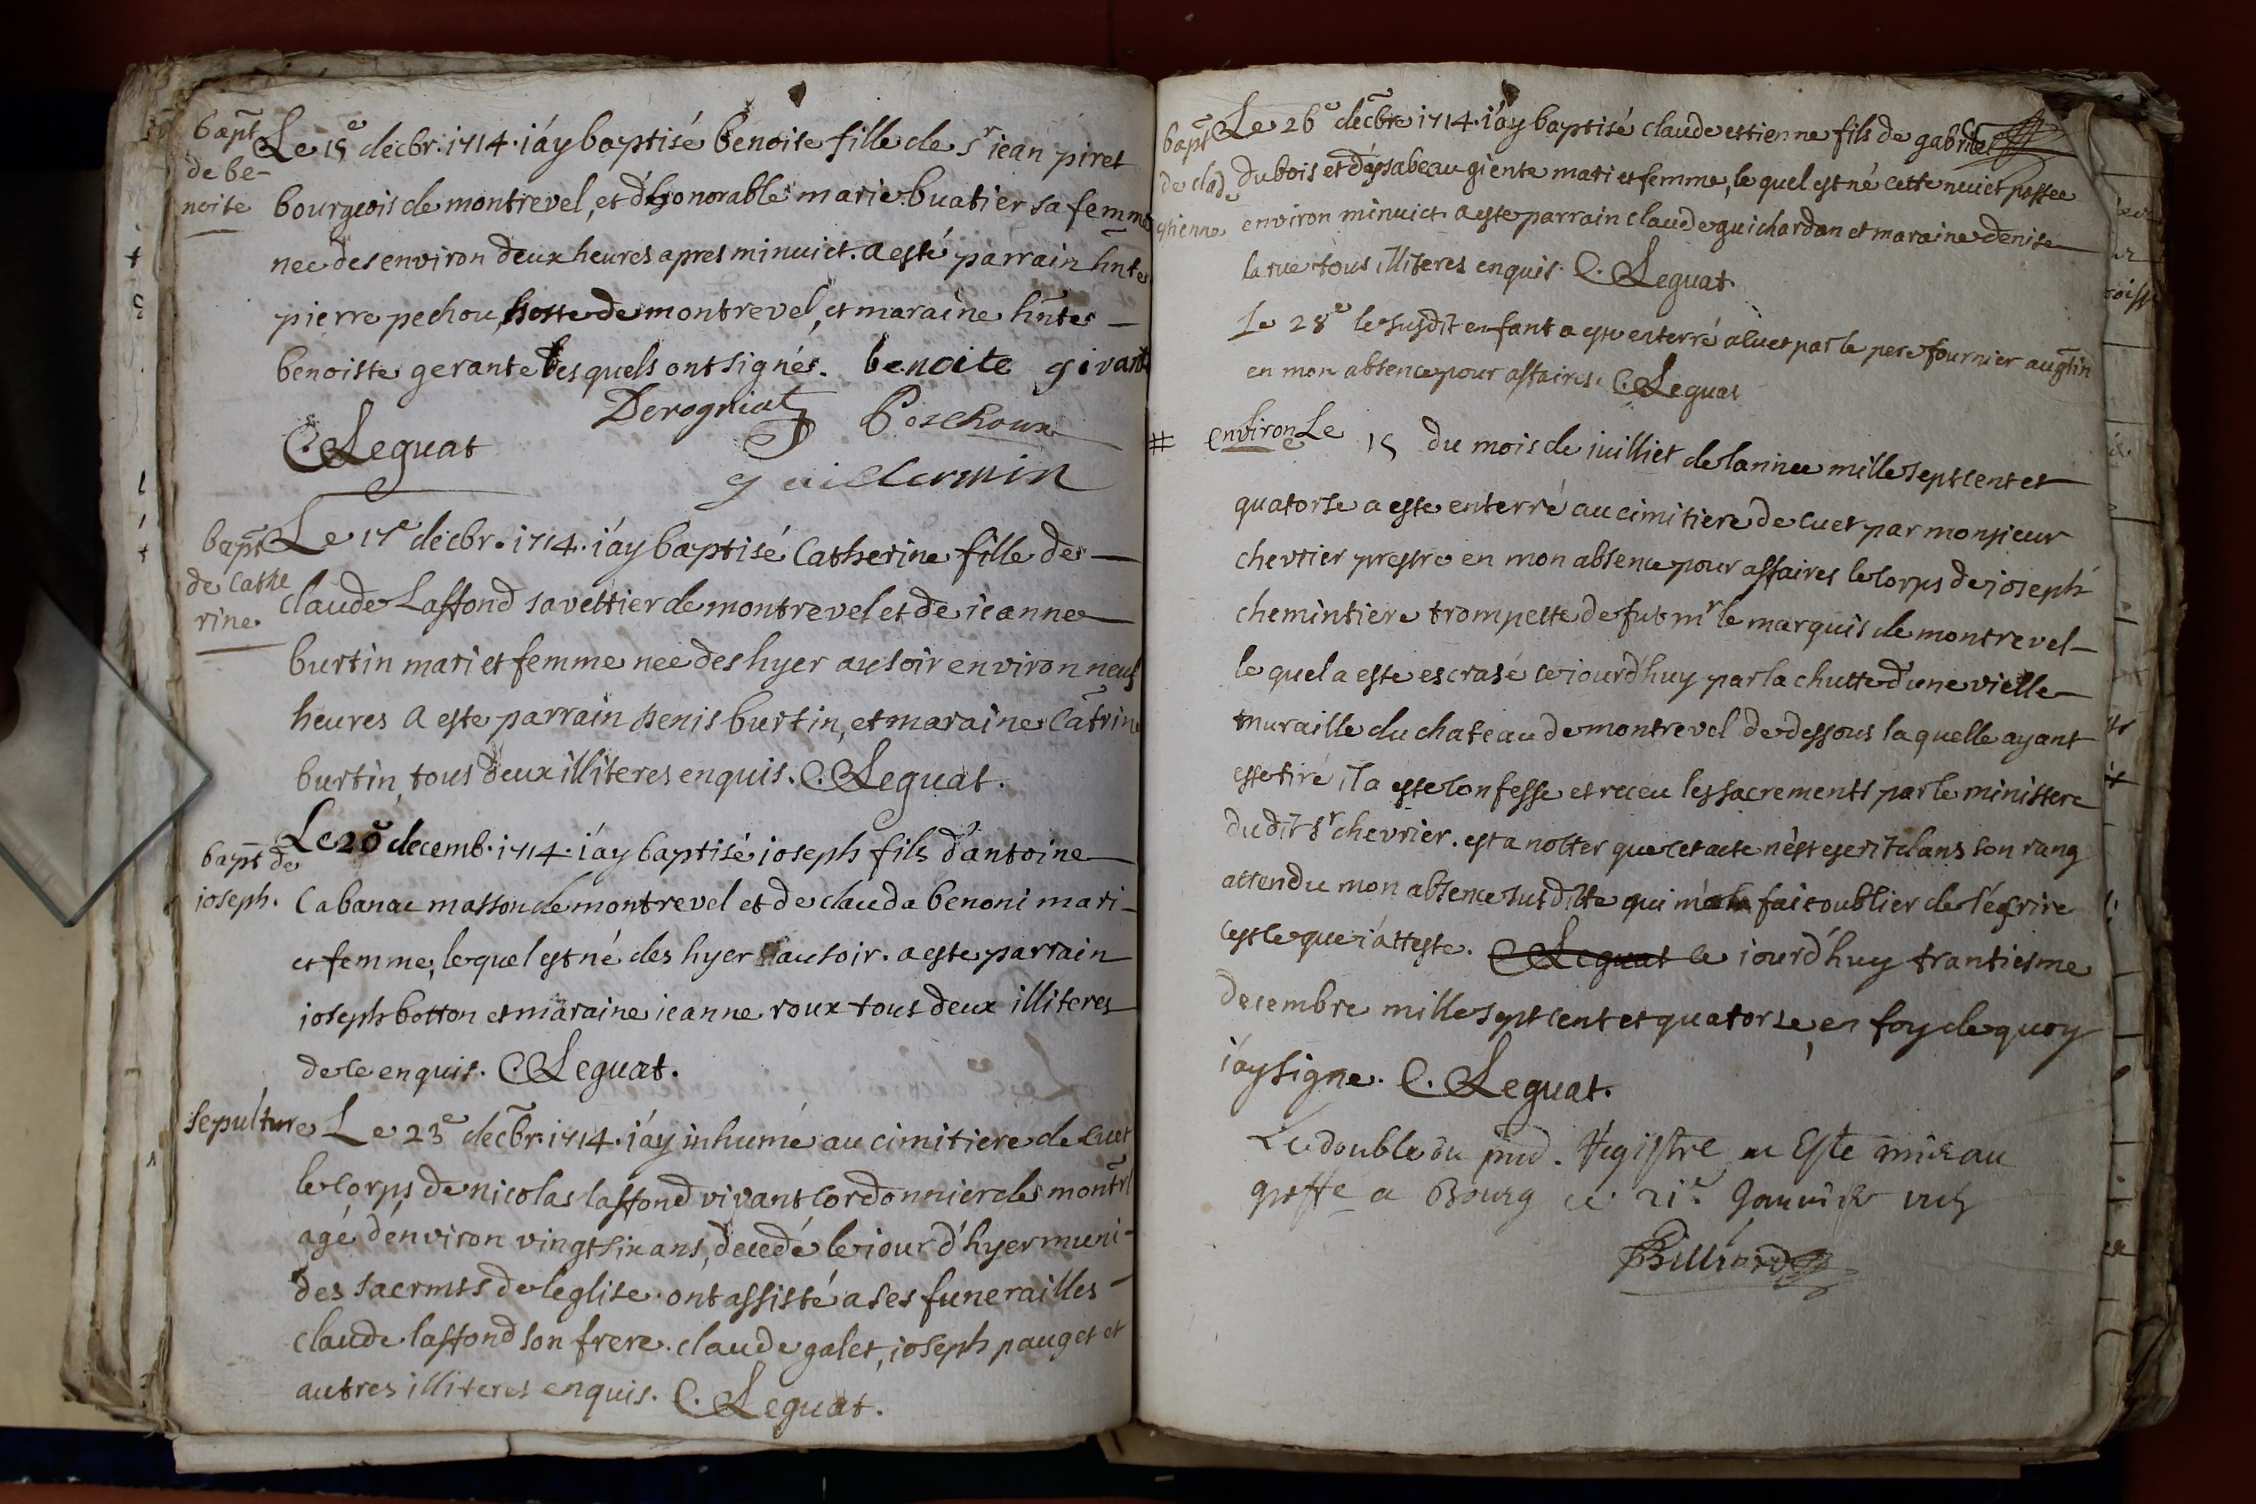 bapt
de be-
noite
Le 15e decbr. 1714. i'ay baptisé benoite fille de sr iean piret
bourgeois de montrevel, et d'honorable marie buatier sa femme
nee des environ deux heures apres minuict. a esté parrain hnte
pierre pechou, hoste de montrevel, et maraine hnte
benoiste gerante lesquels ont signés. benoite givant
Derogniat Poschoux
C. Leguat
guillermin
bapt
de cathe
rine.
Le 17e decbr. 1714. i'ay baptisé Catherine fille de
claude Laffond savettier de montrevel et de ieanne
burtin mari et femme nee des hyer au soir environ neuf
heures a este parrain denis burtin, et maraine Catrine
burtin, tous deux illiteres enquis. C. Leguat.
bapt de
ioseph.
Le 20 decemb. 1714. i'ay baptisé ioseph fils d'antoine
Cabanac masson de montrevel et de clauda benoni mari
et femme, lequel est né des hyer au soir. a este parrain
ioseph botton et maraine ieanne roux tous deux illiteres
de ce enquis. C. Leguat.
sepulture Le 23e decbr. 1714. i'ay inhumé au cimitiere de cuet
le corps de nicolas laffond vivant cordonnier de montrl
agé d'environ vingt six ans, decedé le iour d'hyer muni
des sacrmts de leglise. ont assisté a ses funerailles
claude laffond son frere. claude galet, ioseph pauget et
autres illiteres enquis. C. Leguat.
bapt
de clad
estienne
Le 26e decbre 1714. i'ay baptisé claude estienne fils de gabriel
dubois et d'ysabeau giente mari et femme, le quel est né cette nuict passee
environ minuict a este parrain claude guichardan et maraine denise
larue tous illiteres enquis. C. Leguat.
Le 28e le susdit enfant a este enterré a cuet par le pere fournier augtin
en mon absence pour affaires. C. Leguat
# environ Le 15e du mois de iuilliet de lannee mille sept cent et
quatorse a este enterré au cimitiere de cuet par monsieur
chevrier prestre en mon absence pour affaires le corps de ioseph
chemintiere trompette de fut mr le marquis de montrevel
le quel a este escrasé ce iourd'huy par la chutte d'une vielle
muraille du chateau de montrevel de dessous la quelle ayant
este tiré, il a este confesse et receu les sacrements par le ministere
du dit sr chevrier. est a notter que cet acte n'est escrit dans son rang
attendu mon absence susditte qui m'a fait oublier de l'écrire
cest ce que i'atteste. C. Leguat ce iourd'huy trantiesme
decembre mille sept cent et quatorse, en foy de quoy
i'ay signe. C. Leguat.
Le double du pnd. Registre a Este mis au
greffe a Bourg ce 21e Janvier
Billiard